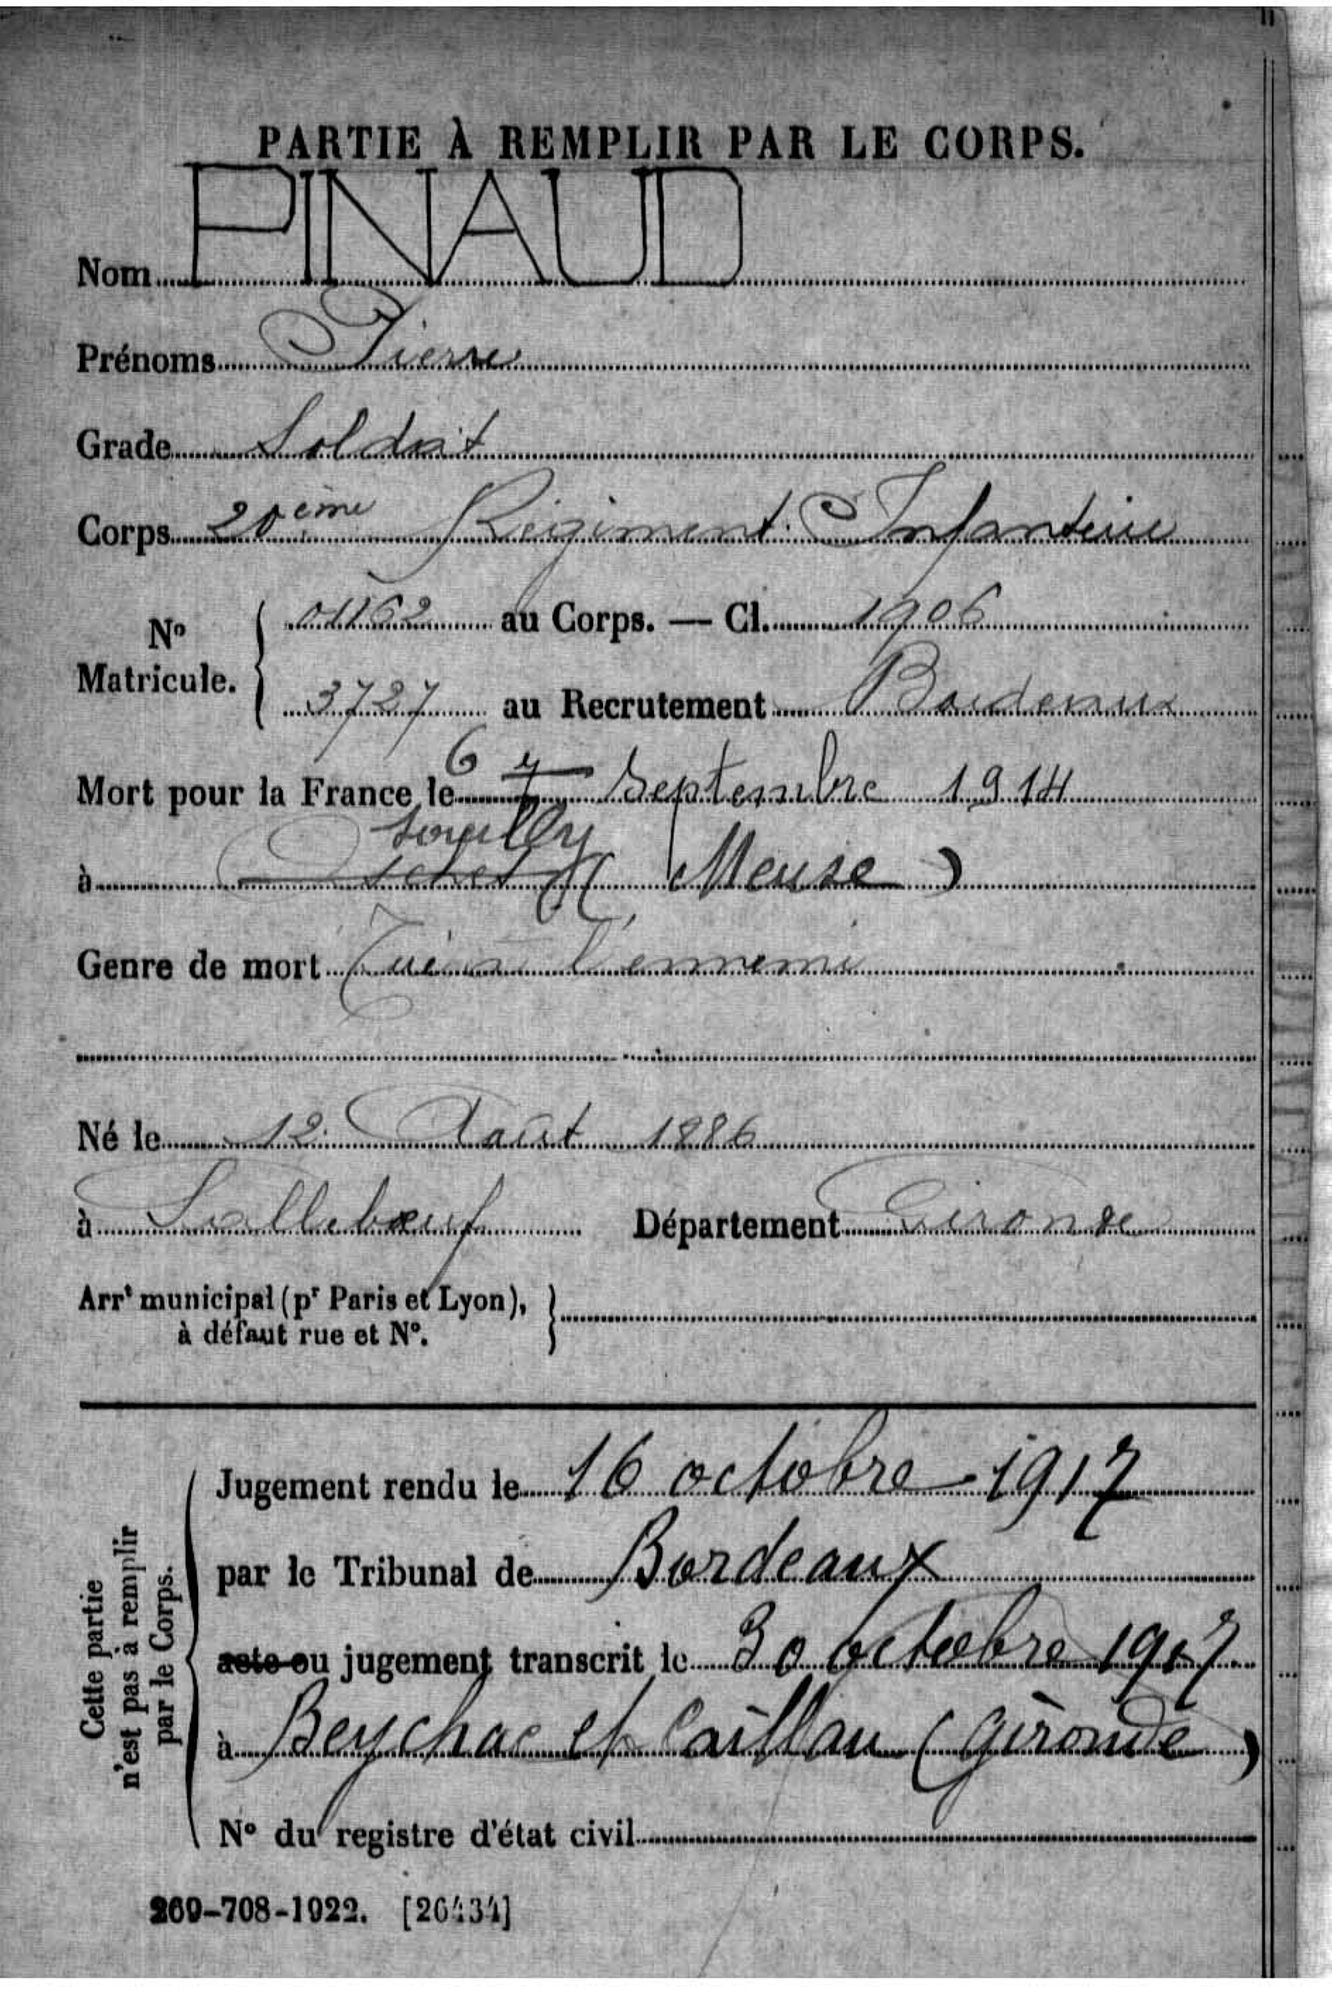 PARTIE À REMPLIR PAR LE CORPS.
Nom PINAUD
Prénoms Pierre
Grade Soldat
Corps 20ème Régiment Infanterie
No Matricule. { 01162 au Corps. — Cl. 1906
3727 au Recrutement Bordeaux
6
Mort pour la France le 7 Septembre 1914
Souilly
à (Meuse)
Genre de mort Tué à l'ennemi
Né le 12 Août 1886
à Sallebœuf Département Gironde
Arrt municipal (pr Paris et Lyon), }
à défaut rue et No.
Cette partie n'est pas à remplir par le Corps.
Jugement rendu le 16 octobre 1917
par le Tribunal de Bordeaux
acte ou jugement transcrit le 30 octobre 1917
à Beychac et Caillau (Gironde)
No du registre d'état civil
269-708-1922. [26434]